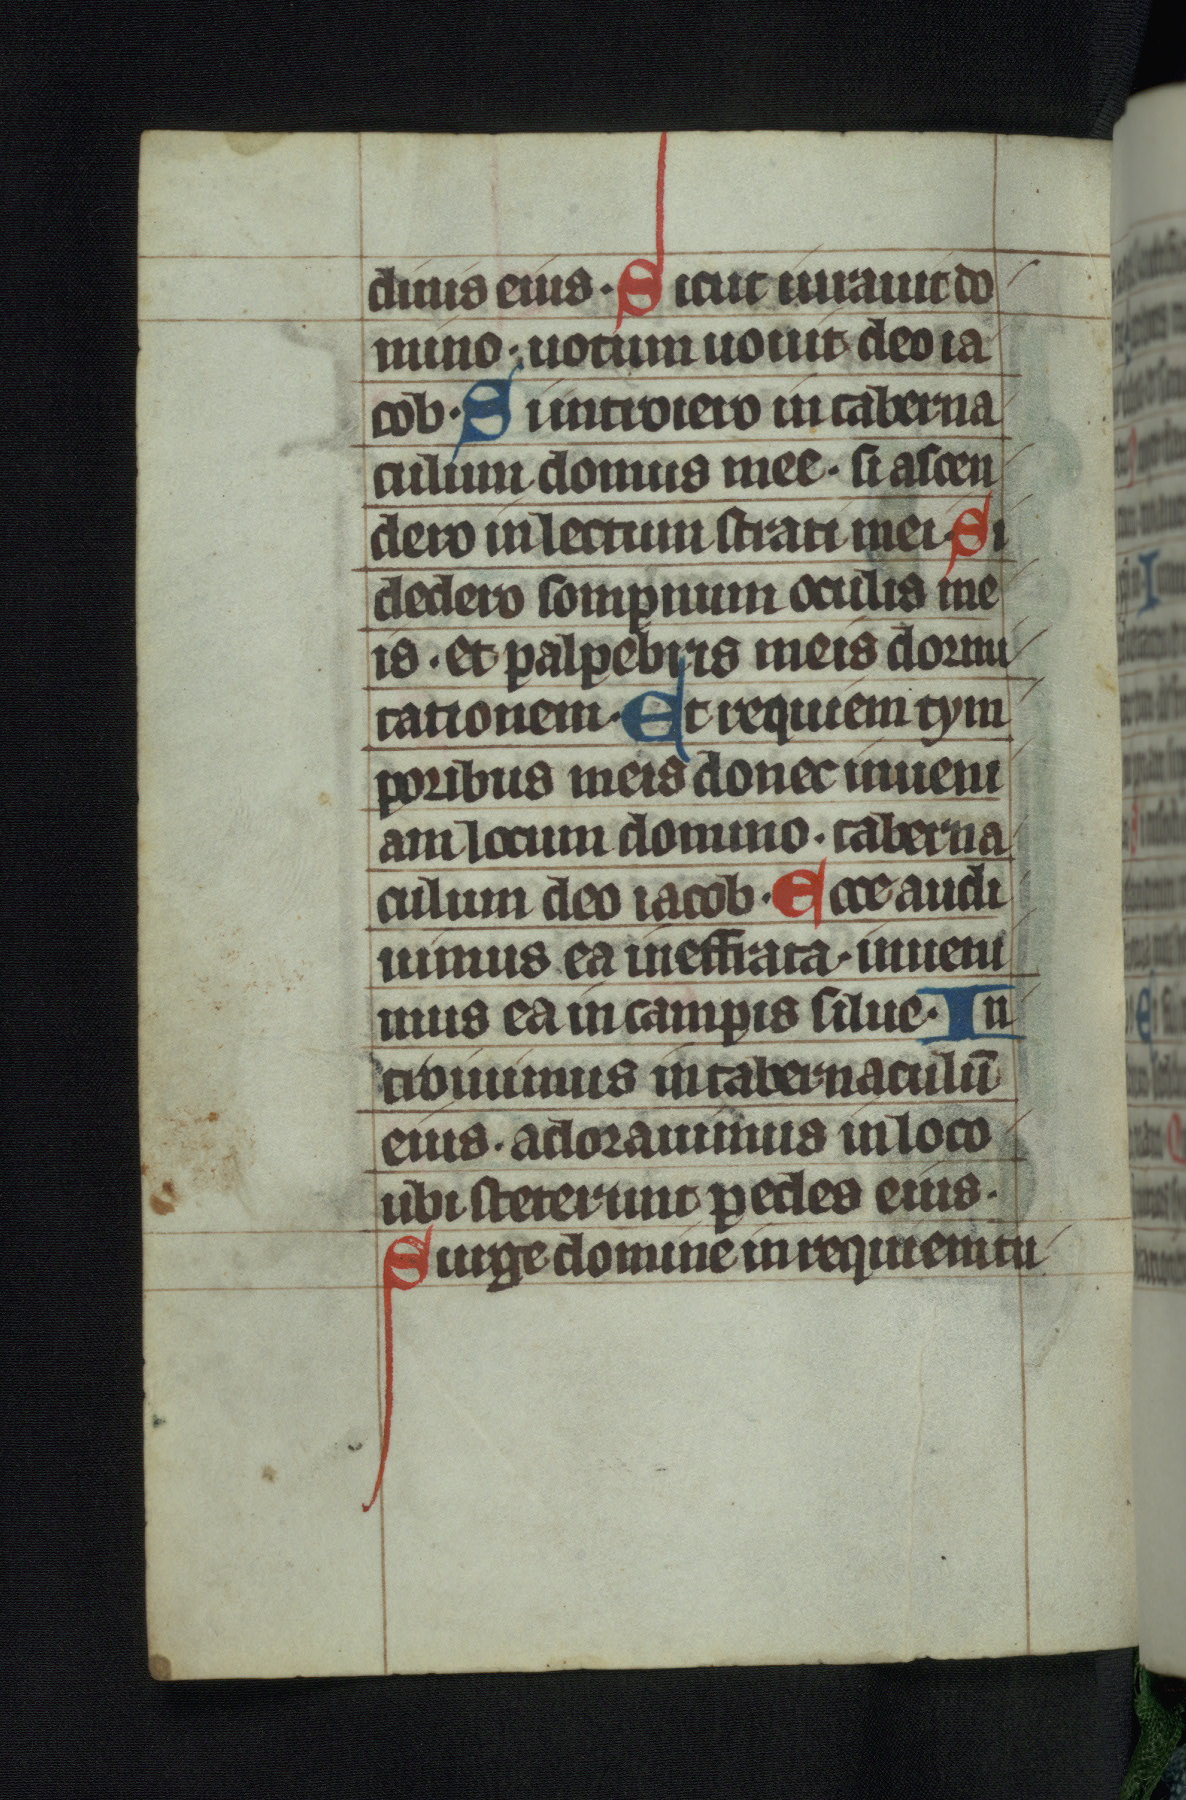 dinis eius · Sicut iurauit do
mino · uotum uouit deo ia
cob · Si introiero in taberna
culum domus mee · si ascen
dero in lectum strati mei · Si
dedero sompnum oculis me
is · et palpebris meis dormi
tationem · Et requiem tym
poribus meis donec inueni
am locum domino · taberna
culum deo iacob · Ecce audi
uimus ea in effrata · inueni
mus ea in campis silue · In
troiuimus in tabernaculū
eius · adorauimus in loco
ubi steterunt pedes eius ·
Surge domine in requiem tu